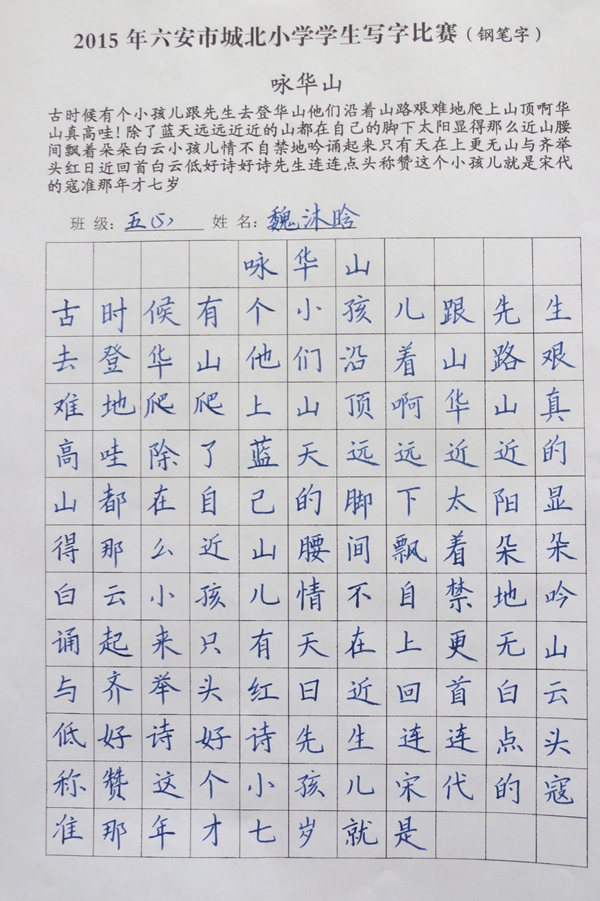 2015年六安市城北小学学生写字比赛（钢笔字）
咏华山
古时候有个小孩儿跟先生去登华山他们沿着山路艰难地爬上山顶啊华
山真高哇！除了蓝天远远近近的山都在自己的脚下太阳显得那么近山腰
间飘着朵朵白云小孩儿情不自禁地吟诵起来只有天在上更无山与齐举
头红日近回首白云低好诗好诗先生连连点头称赞这个小孩儿就是宋代
的寇准那年才七岁
班级：五（5） 姓名：魏沐晗
咏华山
古时候有个小孩儿跟先生
去登华山他们沿着山路艰
难地爬爬上山顶啊华山真
高哇除了蓝天远远近近的
山都在自己的脚下太阳显
得那么近山腰间飘着朵朵
白云小孩儿情不自禁地吟
诵起来只有天在上更无山
与齐举头红日近回首白云
低好诗好诗先生连连点头
称赞这个小孩儿宋代的寇
准那年才七岁就是